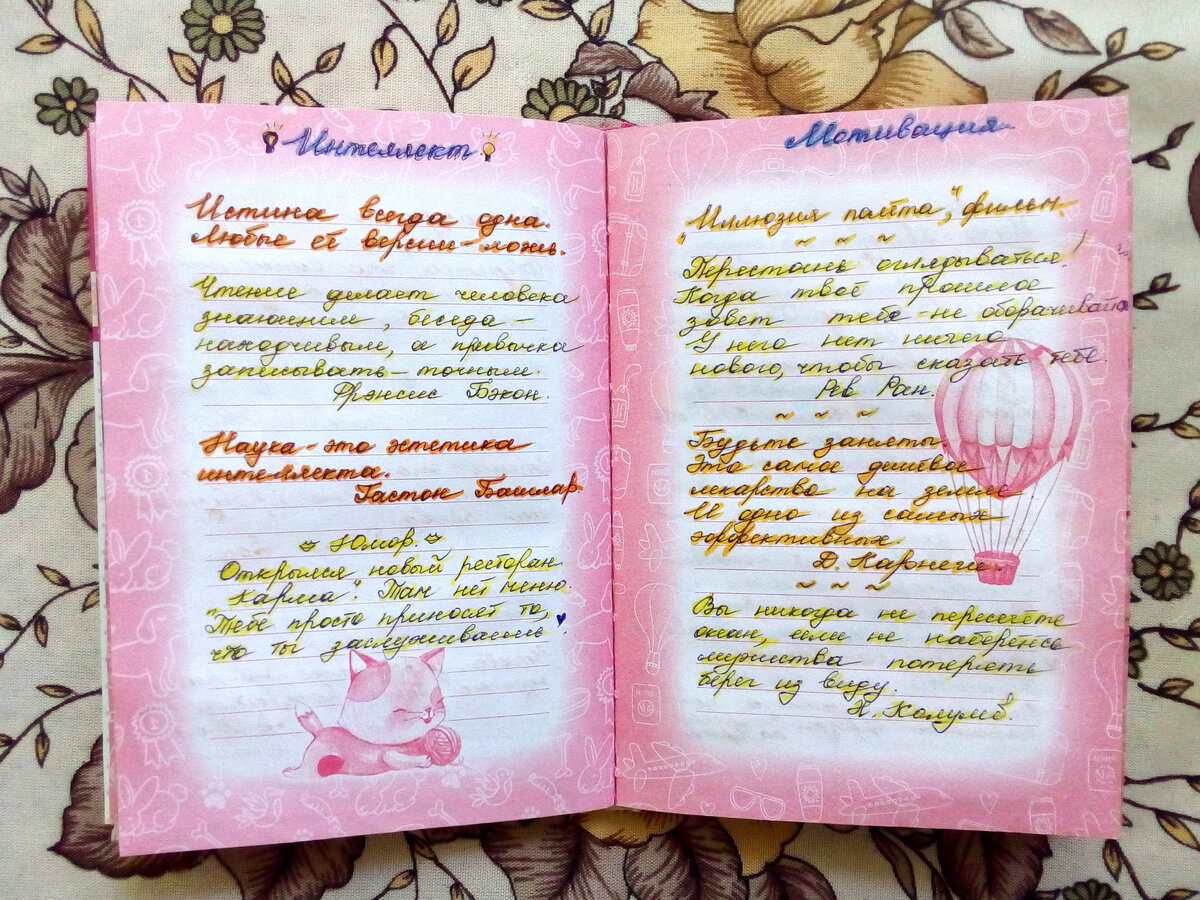 Интеллект
Истина всегда одна.
Любые её версии - ложь.
Чтение делает человека
знающим, беседа -
находчивым, а привычка
записывать - точным.
Фрэнсис Бэкон.
Наука - это эстетика
интеллекта.
Гастон Башляр.
Юмор.
Открылся новый ресторан
"Карма". Там нет меню.
Тебе просто приносят то,
что ты заслуживаешь
Мотивация
"Иллюзия полёта", фильм.
~ ~ ~
Перестань оглядываться!
Когда твоё прошлое
зовёт тебя - не оборачивайся
У него нет ничего
нового, чтобы сказать тебе.
Рев Ран.
~ ~ ~
Будьте заняты.
Это самое дешёвое
лекарство на земле
И одно из самых
эффективных.
Д. Карнеги.
~ ~ ~
Вы никогда не пересечёте
океан, если не наберётесь
мужества потерять
берег из виду.
Х. Колумб.